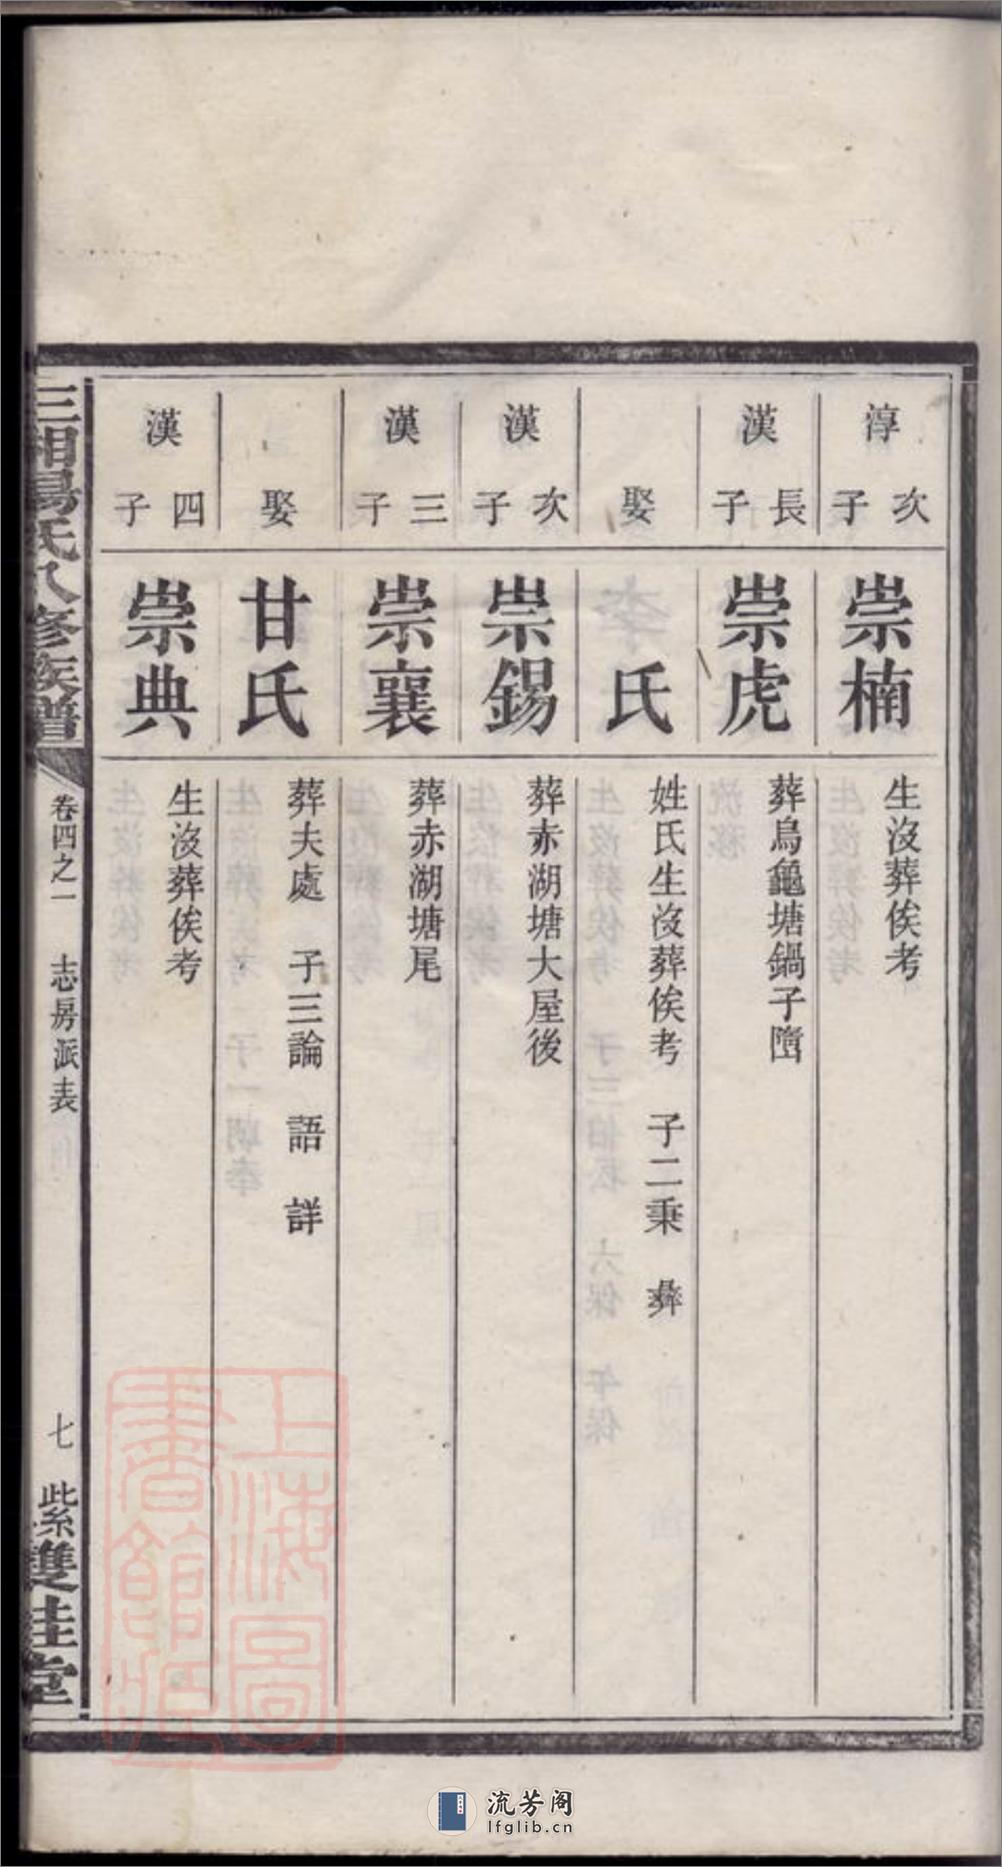 淳次子
崇楠
生沒葬俟考
漢長子
崇虎
葬烏龜塘鍋子墈
娶
氏
姓氏生沒葬俟考 子二秉 彝
漢次子
崇錫
葬赤湖塘大屋後
漢三子
崇襄
葬赤湖塘尾
娶
甘氏
葬夫處 子三論 語 詳
漢四子
崇典
生沒葬俟考
三湘易氏八修族譜
卷四之一 志房派表
七 紫 雙桂堂
上海圖書館藏
流芳阁
lfglib.cn